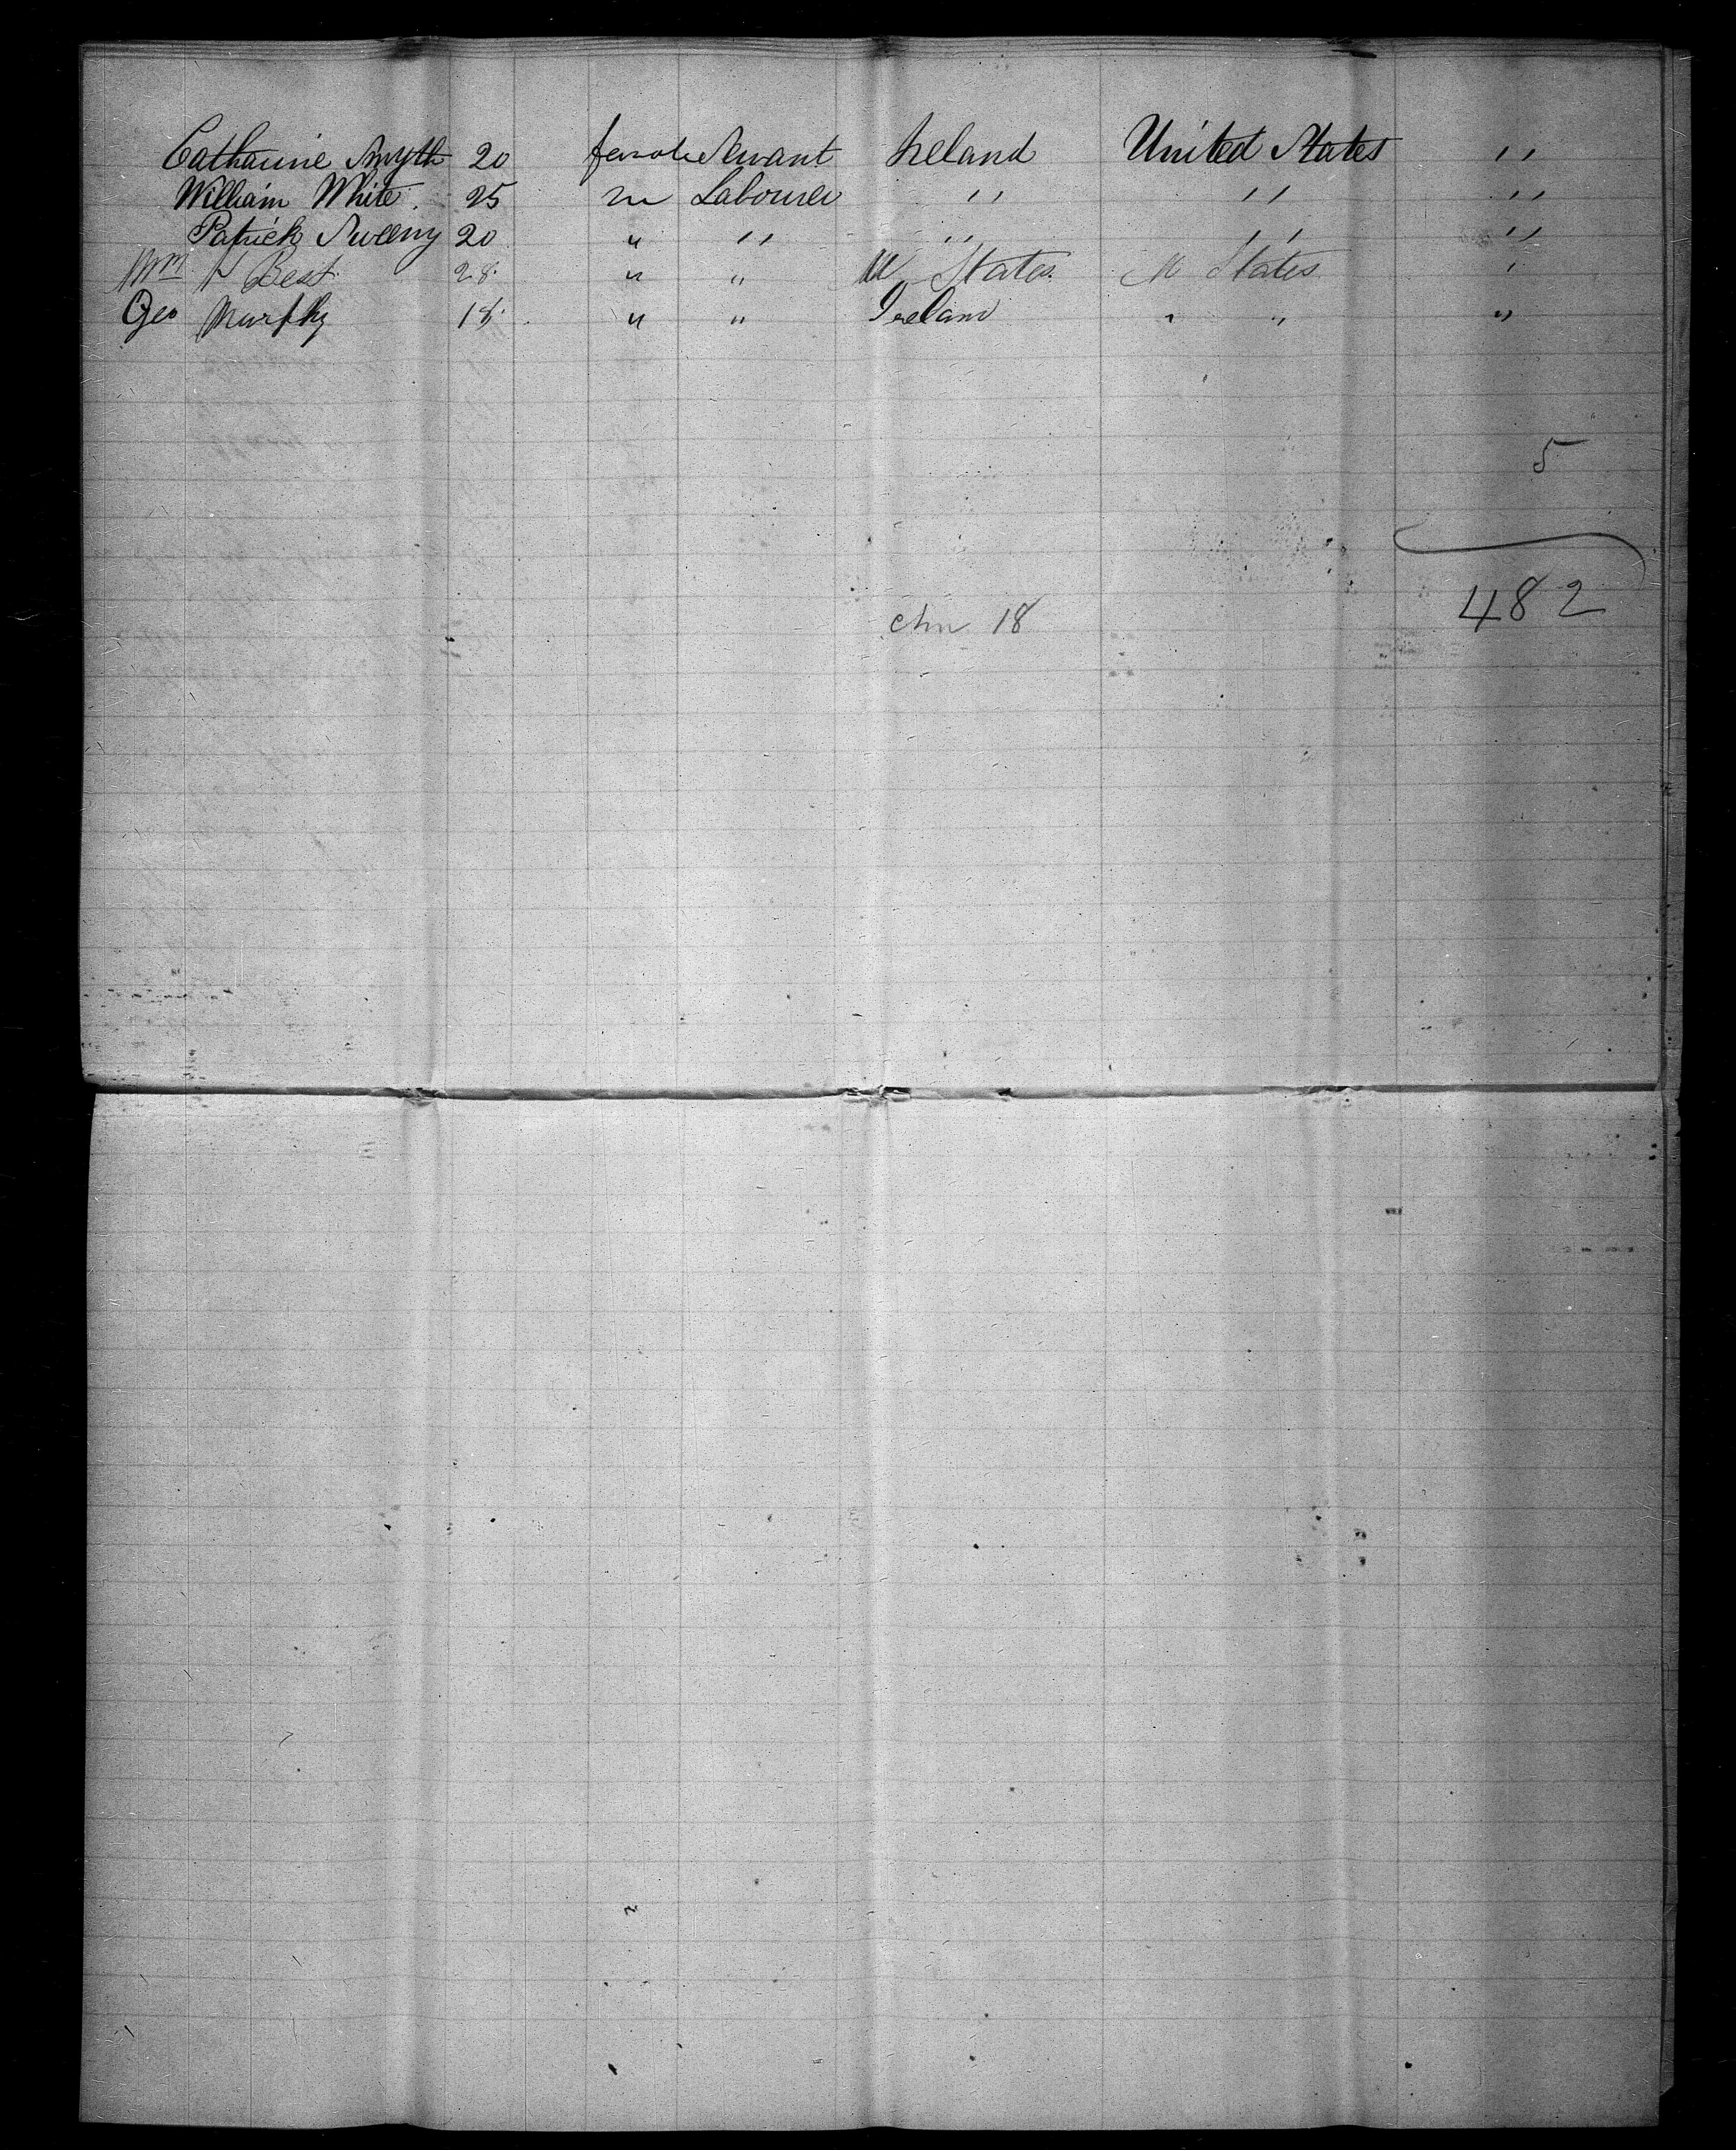 Catharine Smyth 20 female Servant Ireland United States ,,
William White. 25 m Labourer ,, ,, ,,
Patrick Sweeny 20 " ,, ,, ,, ,,
Wm H Best 28 " " U States. U States "
Geo Murphy 18 " " Ireland " " "
5
482
chn 18